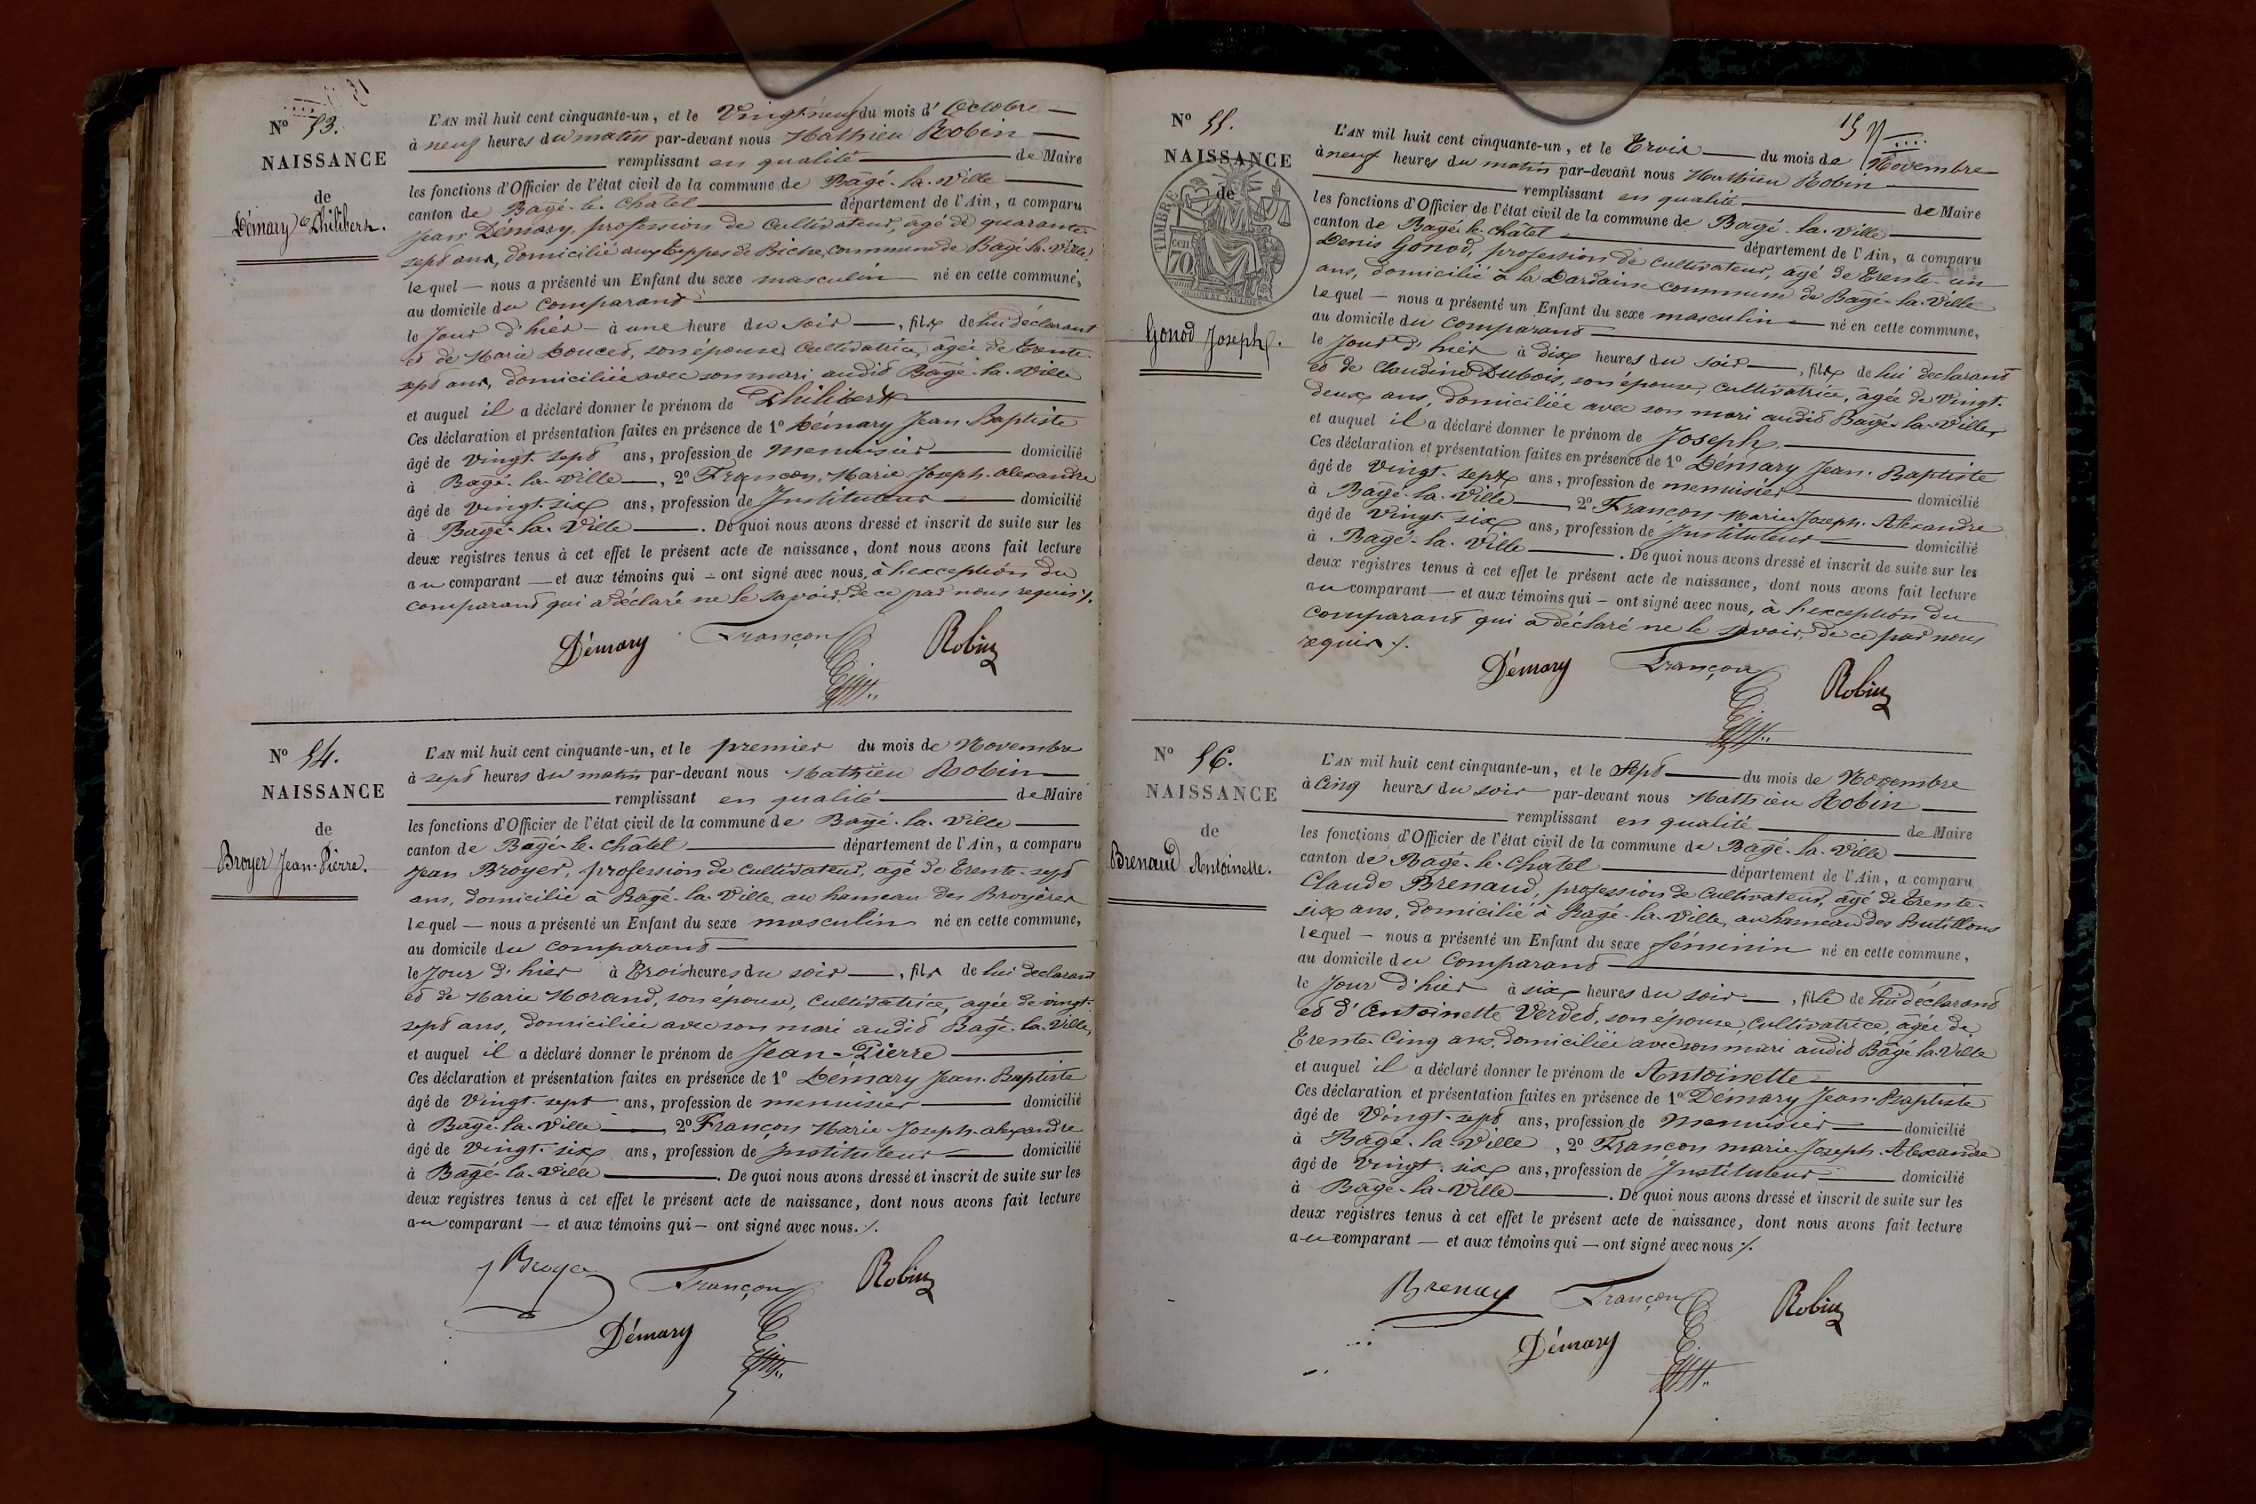 N° 53.
NAISSANCE
de
Démary Philibert.
L'AN mil huit cent cinquante-un, et le Vingt neuf du mois d'Octobre
à neuf heures du matin par-devant nous Mathieu Robin
remplissant en qualité de Maire
les fonctions d'Officier de l'état civil de la commune de Bagé-la-Ville
canton de Bagé-le-Chatel département de l'Ain, a comparu
Jean Démary, profession de Cultivateur, âgé de quarante-
sept ans, domicilié aux Teppes de Biche, commune de Bagé-la-Ville,
lequel — nous a présenté un Enfant du sexe masculin né en cette commune,
au domicile du comparant
le Jour d'hier — à une heure du soir —, fils de lui déclarant
et de Marie Doucet, son épouse, Cultivatrice, âgée de Trente-
sept ans, domiciliée avec son mari audit Bagé-la-Ville
et auquel il a déclaré donner le prénom de Philibert
Ces déclaration et présentation faites en présence de 1° Démary Jean-Baptiste
âgé de Vingt-sept ans, profession de Menuisier domicilié
à Bagé-la-Ville —, 2° Françon, Marie-Joseph-Alexandre
âgé de Vingt-six ans, profession de Instituteur domicilié
à Bagé-la-Ville —. De quoi nous avons dressé et inscrit de suite sur les
deux registres tenus à cet effet le présent acte de naissance, dont nous avons fait lecture
au comparant — et aux témoins qui — ont signé avec nous, à l'exception du
comparant qui a déclaré ne le savoir, de ce par nous requis ./.
Démary Françon Robin
N° 54.
NAISSANCE
de
Broyer Jean-Pierre.
L'AN mil huit cent cinquante-un, et le premier du mois de Novembre
à sept heures du matin par-devant nous Mathieu Robin
remplissant en qualité de Maire
les fonctions d'Officier de l'état civil de la commune de Bagé-la-Ville
canton de Bagé-le-Châtel département de l'Ain, a comparu
Jean Broyer, profession de Cultivateur, âgé de Trente-sept
ans, domicilié à Bagé-la-Ville, au hameau des Broyères
lequel — nous a présenté un Enfant du sexe masculin né en cette commune,
au domicile du comparant
le Jour d'hier à Trois heures du soir —, fils de lui déclarant
et de Marie Morand, son épouse, Cultivatrice, agée de vingt-
sept ans, domiciliée avec son mari audit Bagé-la-Ville,
et auquel il a déclaré donner le prénom de Jean-Pierre
Ces déclaration et présentation faites en présence de 1° Démary Jean-Baptiste
âgé de Vingt-sept ans, profession de menuisier domicilié
à Bagé-la-Ville —, 2° Françon Marie-Joseph-Alexandre
âgé de Vingt-six ans, profession de Instituteur domicilié
à Bagé-la-Ville —. De quoi nous avons dressé et inscrit de suite sur les
deux registres tenus à cet effet le présent acte de naissance, dont nous avons fait lecture
au comparant — et aux témoins qui — ont signé avec nous. ./.
J Broyer Françon Robin
Démary
N° 55.
NAISSANCE
de
TIMBRE
cen
70
Gonod Joseph.
L'AN mil huit cent cinquante-un, et le Trois — du mois de Novembre
à neuf heures du matin par-devant nous Mathieu Robin
remplissant en qualité de Maire
les fonctions d'Officier de l'état civil de la commune de Bagé-la-Ville
canton de Bagé-le-Châtel département de l'Ain, a comparu
Denis Gonod, profession de Cultivateur, âgé de Trente-un
ans, domicilié à la Dardaine commune de Bagé-la-Ville
lequel — nous a présenté un Enfant du sexe masculin — né en cette commune,
au domicile du comparant
le Jour d'hier à dix heures du soir —, fils de lui déclarant
et de Claudine Dubois, son épouse, Cultivatrice, âgée de Vingt-
deux ans, domiciliée avec son mari audit Bagé-la-Ville,
et auquel il a déclaré donner le prénom de Joseph
Ces déclaration et présentation faites en présence de 1° Démary Jean-Baptiste
âgé de Vingt-sept ans, profession de menuisier domicilié
à Bagé-la-Ville —, 2° Françon Marie-Joseph-Alexandre
âgé de Vingt-six ans, profession de Instituteur domicilié
à Bagé-la-Ville —. De quoi nous avons dressé et inscrit de suite sur les
deux registres tenus à cet effet le présent acte de naissance, dont nous avons fait lecture
au comparant — et aux témoins qui — ont signé avec nous, à l'exception du
comparant qui a déclaré ne le savoir, de ce par nous
requis ./.
Démary Françon Robin
N° 56.
NAISSANCE
de
Brenaud Antoinette.
L'AN mil huit cent cinquante-un, et le Sept — du mois de Novembre
à Cinq heures du soir par-devant nous Mathieu Robin
remplissant en qualité de Maire
les fonctions d'Officier de l'état civil de la commune de Bagé-la-Ville
canton de Bagé-le-Chatel département de l'Ain, a comparu
Claude Brenaud, profession de Cultivateur, âgé de Trente-
six ans, domicilié à Bagé-la-Ville, au hameau des Butillons
lequel — nous a présenté un Enfant du sexe féminin né en cette commune,
au domicile du Comparant
le Jour d'hier à six heures du soir —, fille de lui déclarant
et d'Antoinette Verdet, son épouse, Cultivatrice, âgée de
Trente-Cinq ans, domiciliée avec son mari audit Bagé-la-Ville
et auquel il a déclaré donner le prénom de Antoinette
Ces déclaration et présentation faites en présence de 1° Démary Jean-Baptiste
âgé de Vingt-sept ans, profession de Menuisier domicilié
à Bagé-la-Ville, 2° Françon marie-Joseph-Alexandre
âgé de Vingt-six ans, profession de Instituteur domicilié
à Bagé-la-Ville —. De quoi nous avons dressé et inscrit de suite sur les
deux registres tenus à cet effet le présent acte de naissance, dont nous avons fait lecture
au comparant — et aux témoins qui — ont signé avec nous ./.
Brenay Françon Robin
Démary